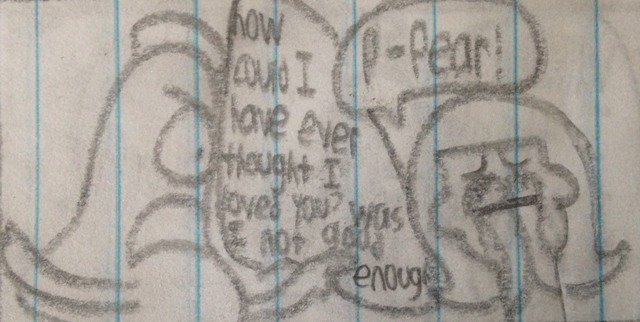 how
could I
have ever
thought I
loved you? Was
I not good
enough
P-Pear!